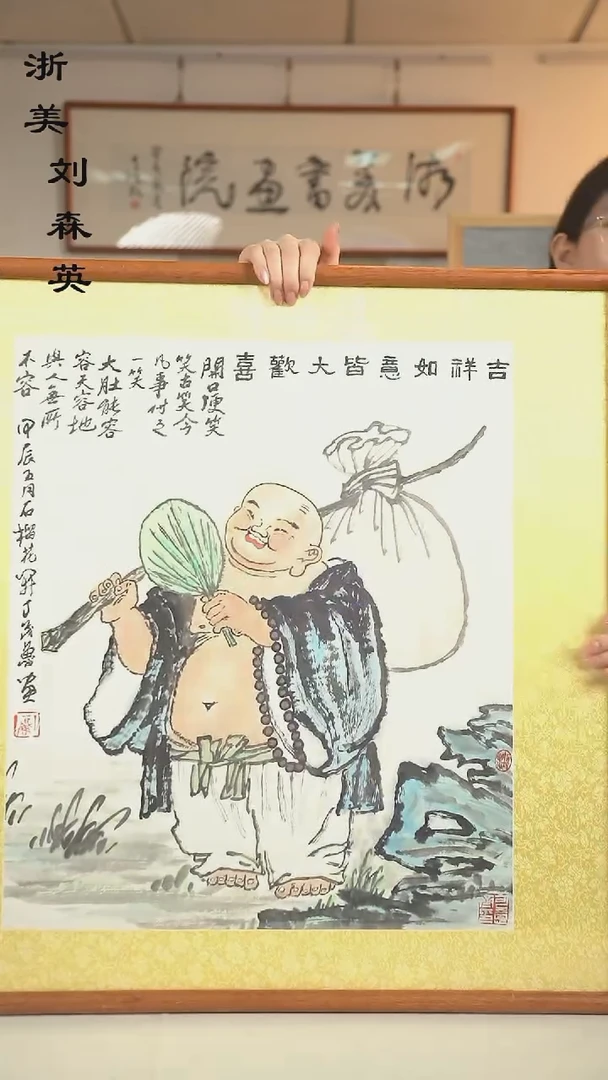 浙美刘森英
浙美書画院
吉祥如意皆大歡喜
開口便笑
笑古笑今
凡事付之
一笑
大肚能容
容天容地
與人無所
不容
甲辰五月石榴花開丁茂魯画